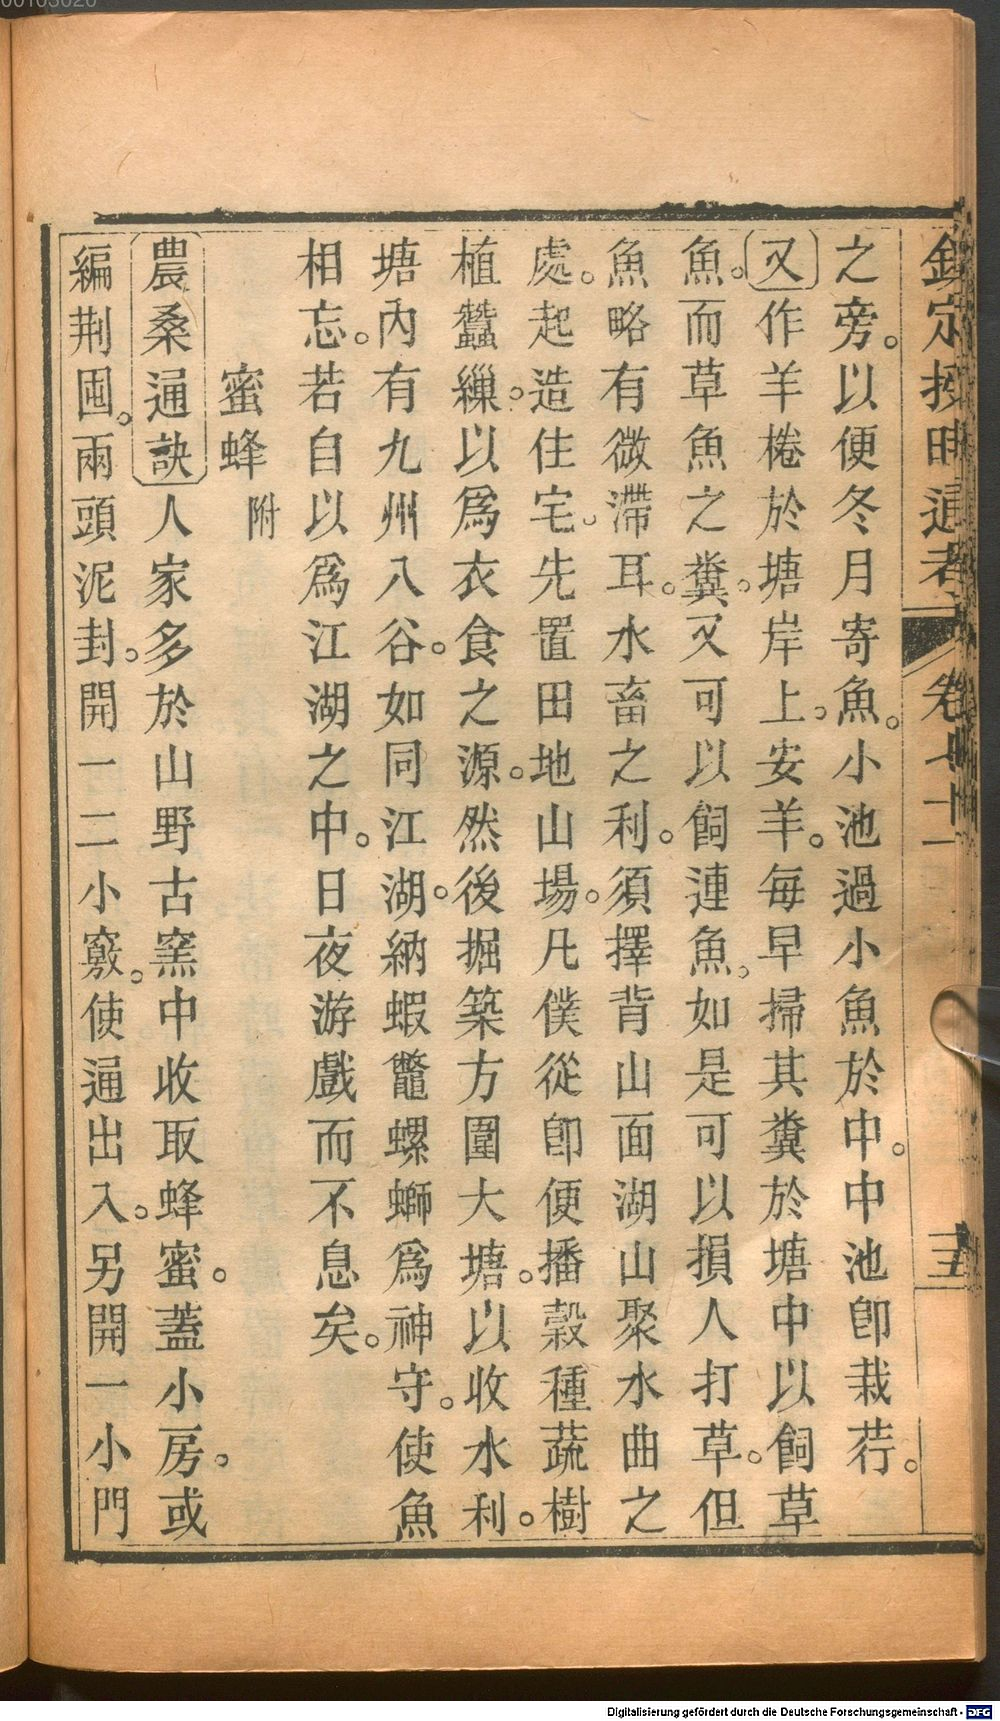 欽定授時通考 卷七十一 三五
之旁。以便冬月寄魚。小池過小魚於中。中池卽栽荇。
又作羊棬於塘岸上。安羊。每早掃其糞於塘中以飼草
魚。而草魚之糞。又可以飼連魚。如是可以損人打草。但
魚略有微滯耳。水畜之利。須擇背山面湖山聚水曲之
處。起造住宅。先置田地山場。凡僕從卽便播穀種蔬樹
植蠶繅。以爲衣食之源。然後掘築方圍大塘。以收水利。
塘內有九州八谷。如同江湖。納蝦鼈螺螄爲神守。使魚
相忘。若自以爲江湖之中。日夜游戲而不息矣。
蜜蜂 附
農桑通訣人家多於山野古窯中收取蜂蜜。蓋小房。或
編荆囤。兩頭泥封。開一二小竅。使通出入。另開一小門
00103020
Digitalisierung gefördert durch die Deutsche Forschungsgemeinschaft - DFG